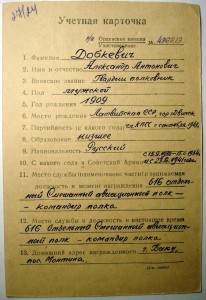 Учетная карточка
1. Фамилия Добкевич
2. Имя и отчество Александр Антонович
3. Звание Гвардии полковник
4. Пол мужской
5. Год рождения 1909
6. Место рождения Латвийская ССР, гор. Двинск
7. Партийность
8. Образование низшее
9. Национальность Русский
10. С какого года в Советской Армии
11. Место службы (наименование части) и занимаемая
должность в момент награждения 616 отдель-
ный Смешанный авиационный полк —
— командир полка
12. Место службы и должность в настоящее время
616 Отдельный Смешанный авиацион-
ный полк — командир полка
13. Домашний адрес награжденного г. Баку,
пос.